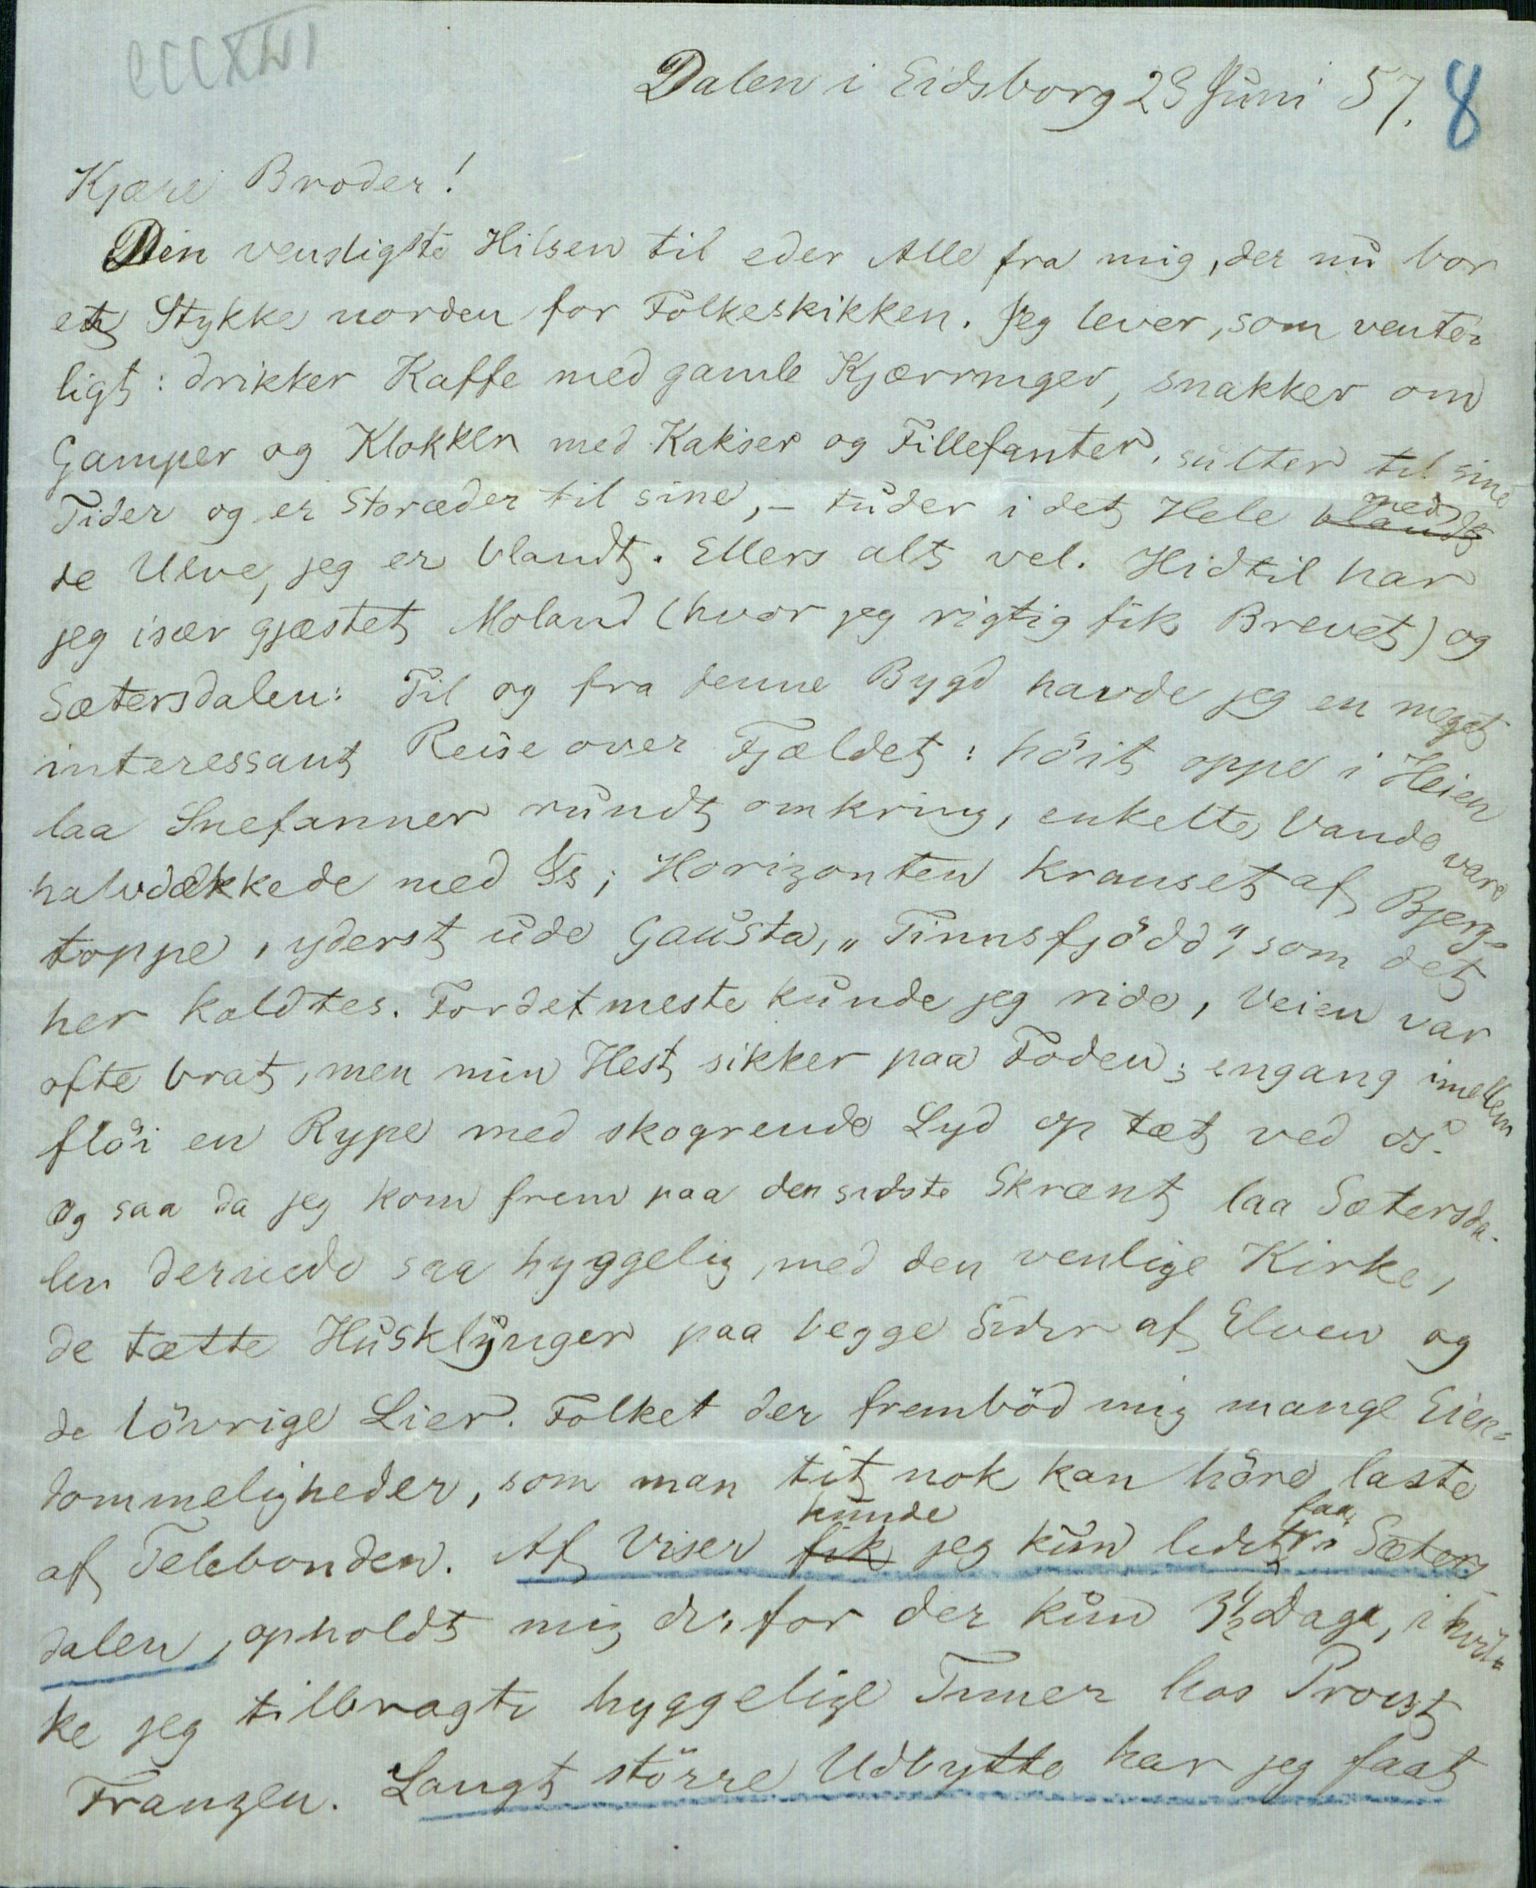 CCCXLVI
Dalen i Eidsborg 23 Juni 57.
8
Kjære Broder!
Din venskligste Hilsen til eder Alle fra mig, der nu bor
et Stykke norden for Folkeskikken. Jeg lever, som vente-
ligt: drikker Kaffe med gamle Kjærringer, snakker om
Gamper og Klokker med Kakser og Fillefanter, sulter til sine
Tider og er Storæder til sine, – tuder i det Hele blandt med
de Ulve, jeg er blandt. Ellers alt vel. Hidtil har
jeg især gjæstet Moland (hvor jeg rigtig fik Brevet) og
Sætersdalen: Til og fra denne Bygd havde jeg en meget
interessant Reise over Fjældet: höit oppe i Heien
laa Snefanner rundt omkring, enkelte Vande vare
halvdækkede med Is; Horizonten kranset af Bjerg-
toppe, yderst ude Gausta, „Tinnsfjödd", som det
her kaldtes. Fordetmeste kunde jeg ride, Veien var
ofte brat, men min Hest sikker paa Foden; engang imellem
flöi en Rype med skogrende Lyd op tæt ved os.
Og saa da jeg kom frem paa den sidste Skrænt laa Sætersda-
len dernede saa hyggelig, med den venlige Kirke,
de tætte Husklynger paa begge Sider af Elven og
de lövrige Lier. Folket der fremböd mig mange Eien-
dommeligheder, som man tit nok kan höre laste
af Telebonden. Af Viser fik kunde jeg kun lidet faa i Sæters-
dalen, opholdt mig derfor der kun 3½ Dage, i hvil-
ke jeg tilbragte hyggelige Timer hos Provst
Franzen. Langt större Udbytte har jeg faat